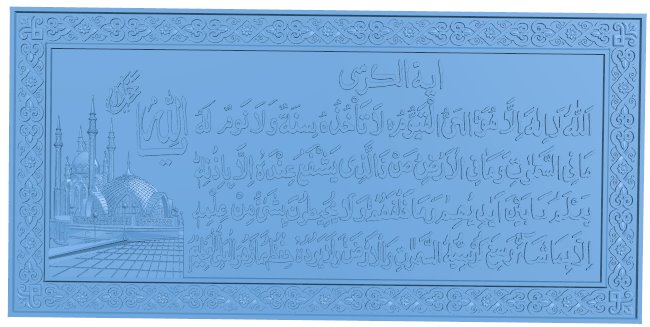 اية الكرسى
الله
اللّٰهُ لَا اِلٰهَ اِلَّا هُوَ الْحَىُّ الْقَيُّومُ لَا تَأْخُذُهُ سِنَةٌ وَلَا نَوْمٌ لَهُ
مَا فِى السَّمٰوَاتِ وَمَا فِى الْاَرْضِ مَنْ ذَا الَّذِى يَشْفَعُ عِنْدَهُ اِلَّا بِاِذْنِهِ
يَعْلَمُ مَا بَيْنَ اَيْدِيهِمْ وَمَا خَلْفَهُمْ وَلَا يُحِيطُونَ بِشَىْءٍ مِنْ عِلْمِهِ
اِلَّا بِمَا شَاءَ وَسِعَ كُرْسِيُّهُ السَّمٰوَاتِ وَالْاَرْضَ وَلَا يَؤُدُهُ حِفْظُهُمَا وَهُوَ الْعَلِىُّ الْعَظِيمُ